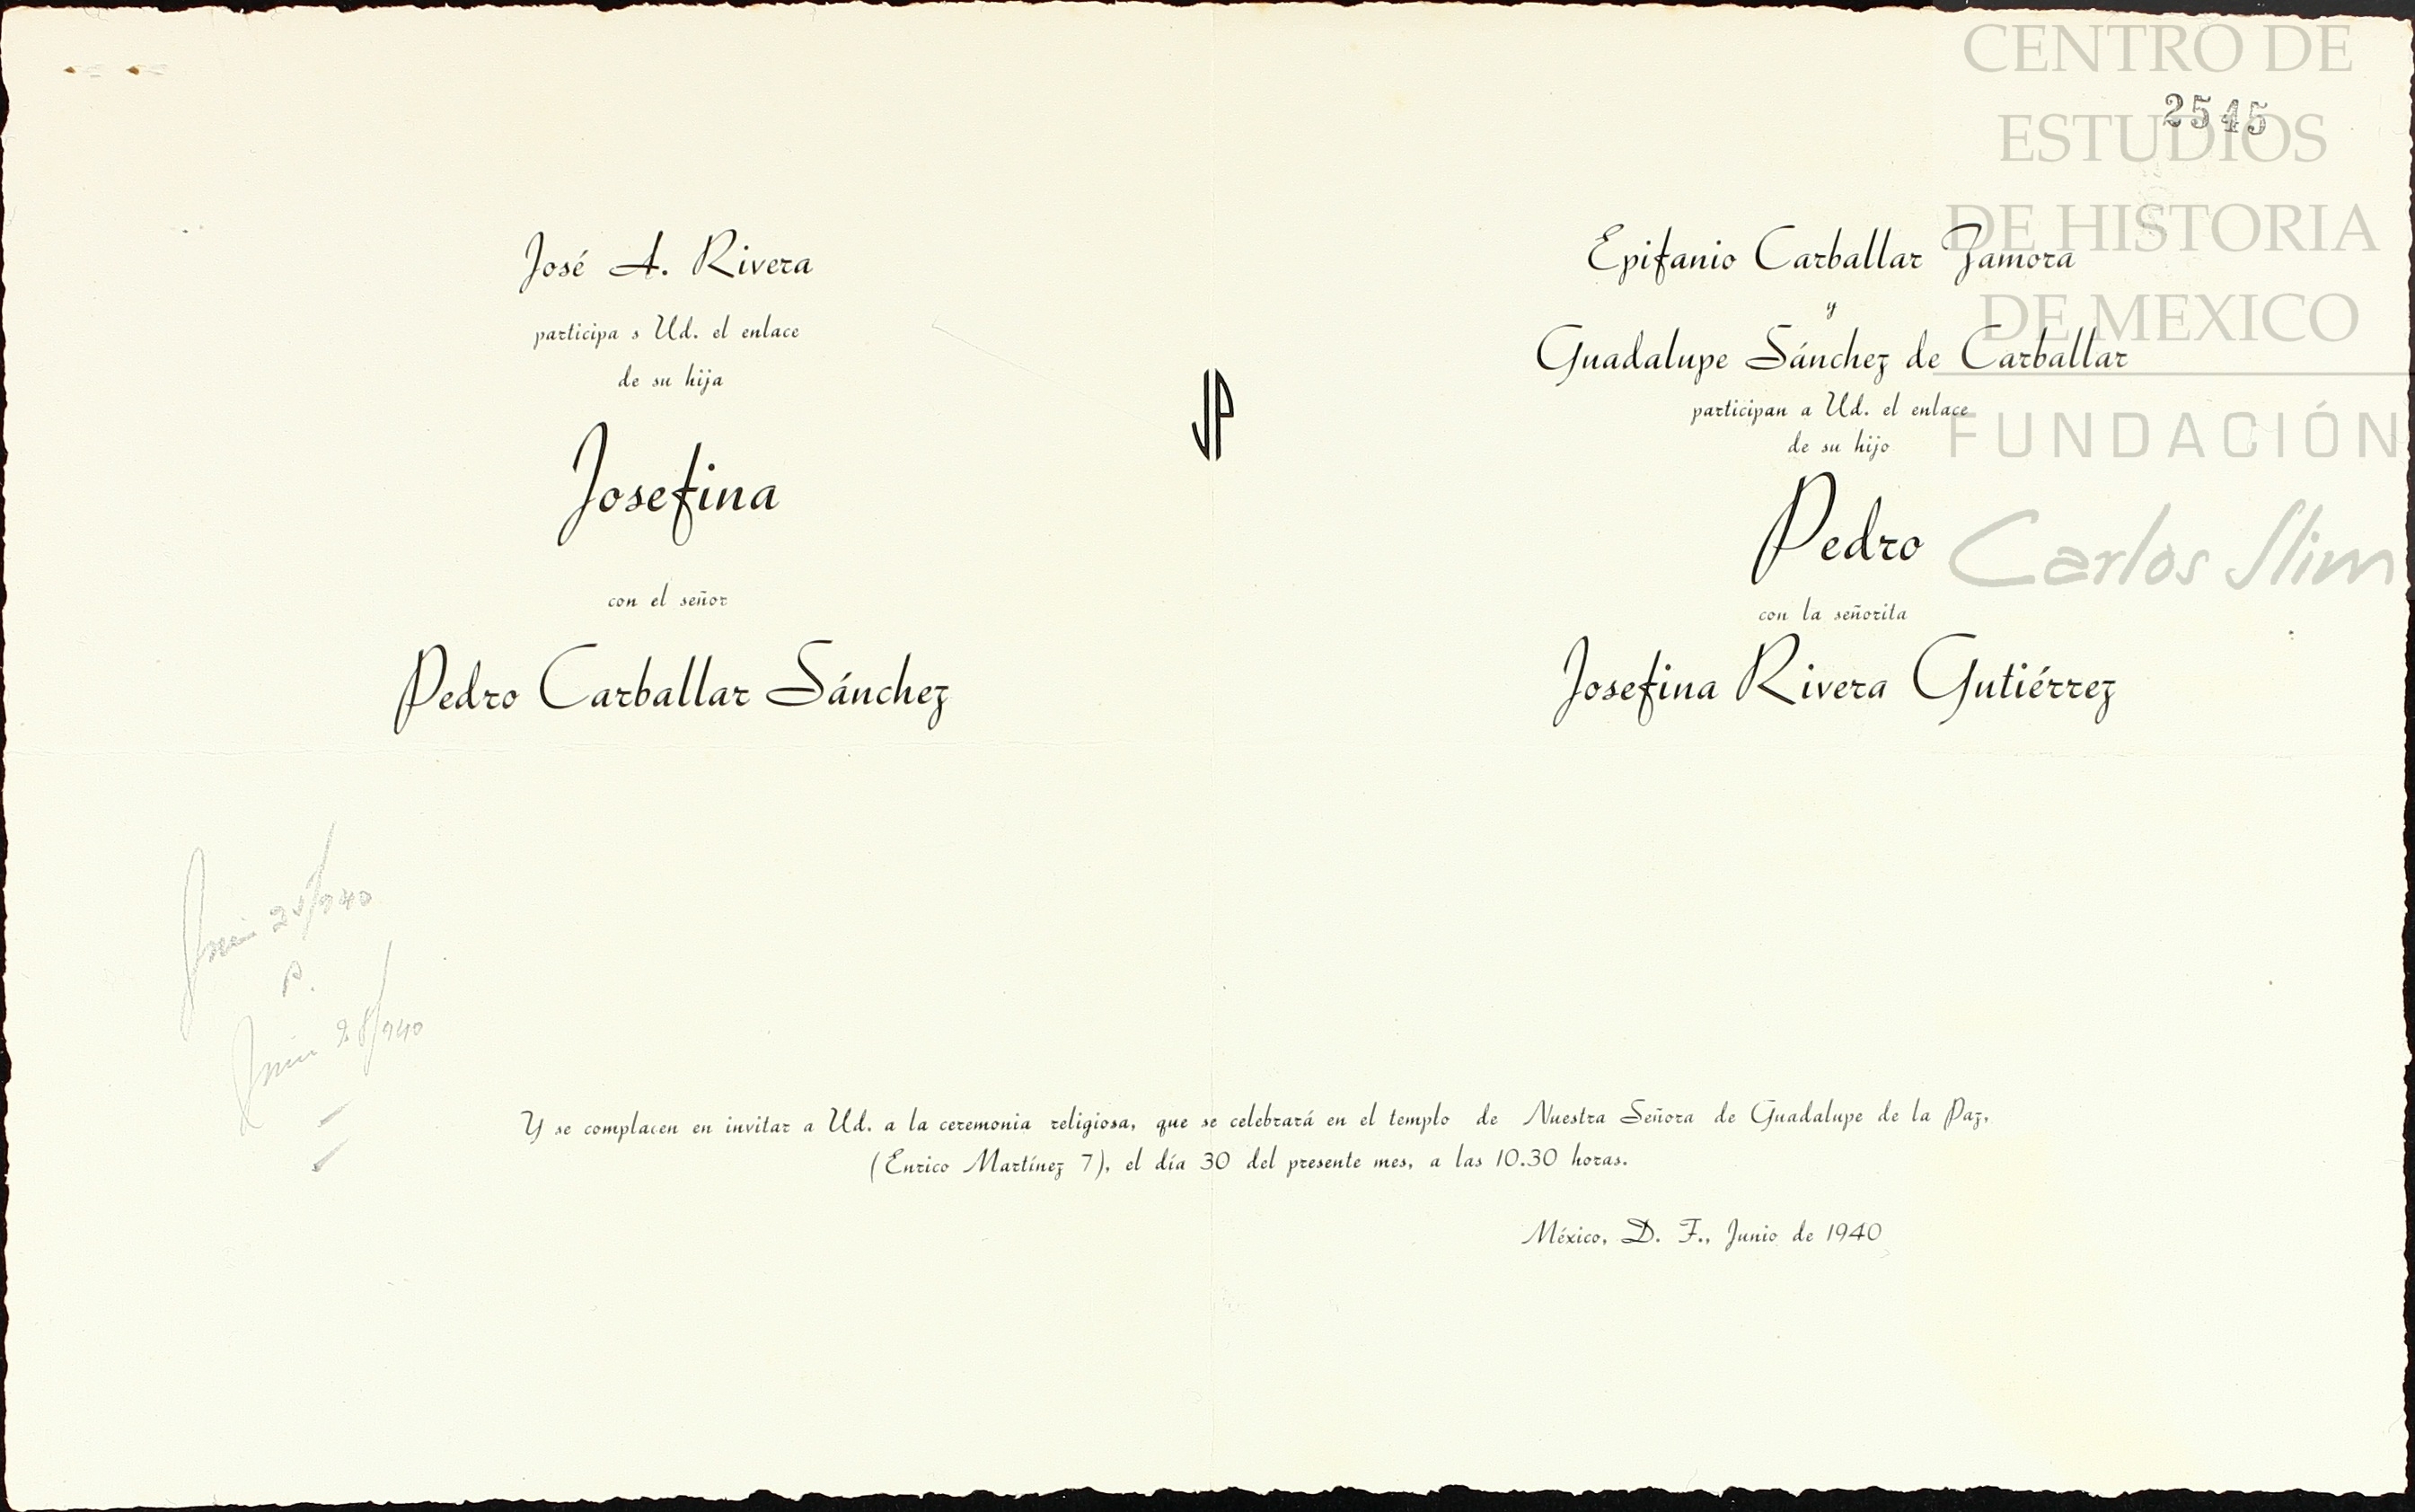 CENTRO DE
ESTUDIOS
DE HISTORIA
DE MEXICO
FUNDACIÓN
Carlos Slim
2545
José A. Rivera
participa s Ud. el enlace
de su hija
Josefina
con el señor
Pedro Carballar Sánchez
JP
Epifanio Carballar Zamora
y
Guadalupe Sánchez de Carballar
participan a Ud. el enlace
de su hijo
Pedro
con la señorita
Josefina Rivera Gutiérrez
Junio 28/940
Y se complacen en invitar a Ud. a la ceremonia religiosa, que se celebrará en el templo de Nuestra Señora de Guadalupe de la Paz,
(Enrico Martínez 7), el día 30 del presente mes, a las 10.30 horas.
México, D. F., Junio de 1940